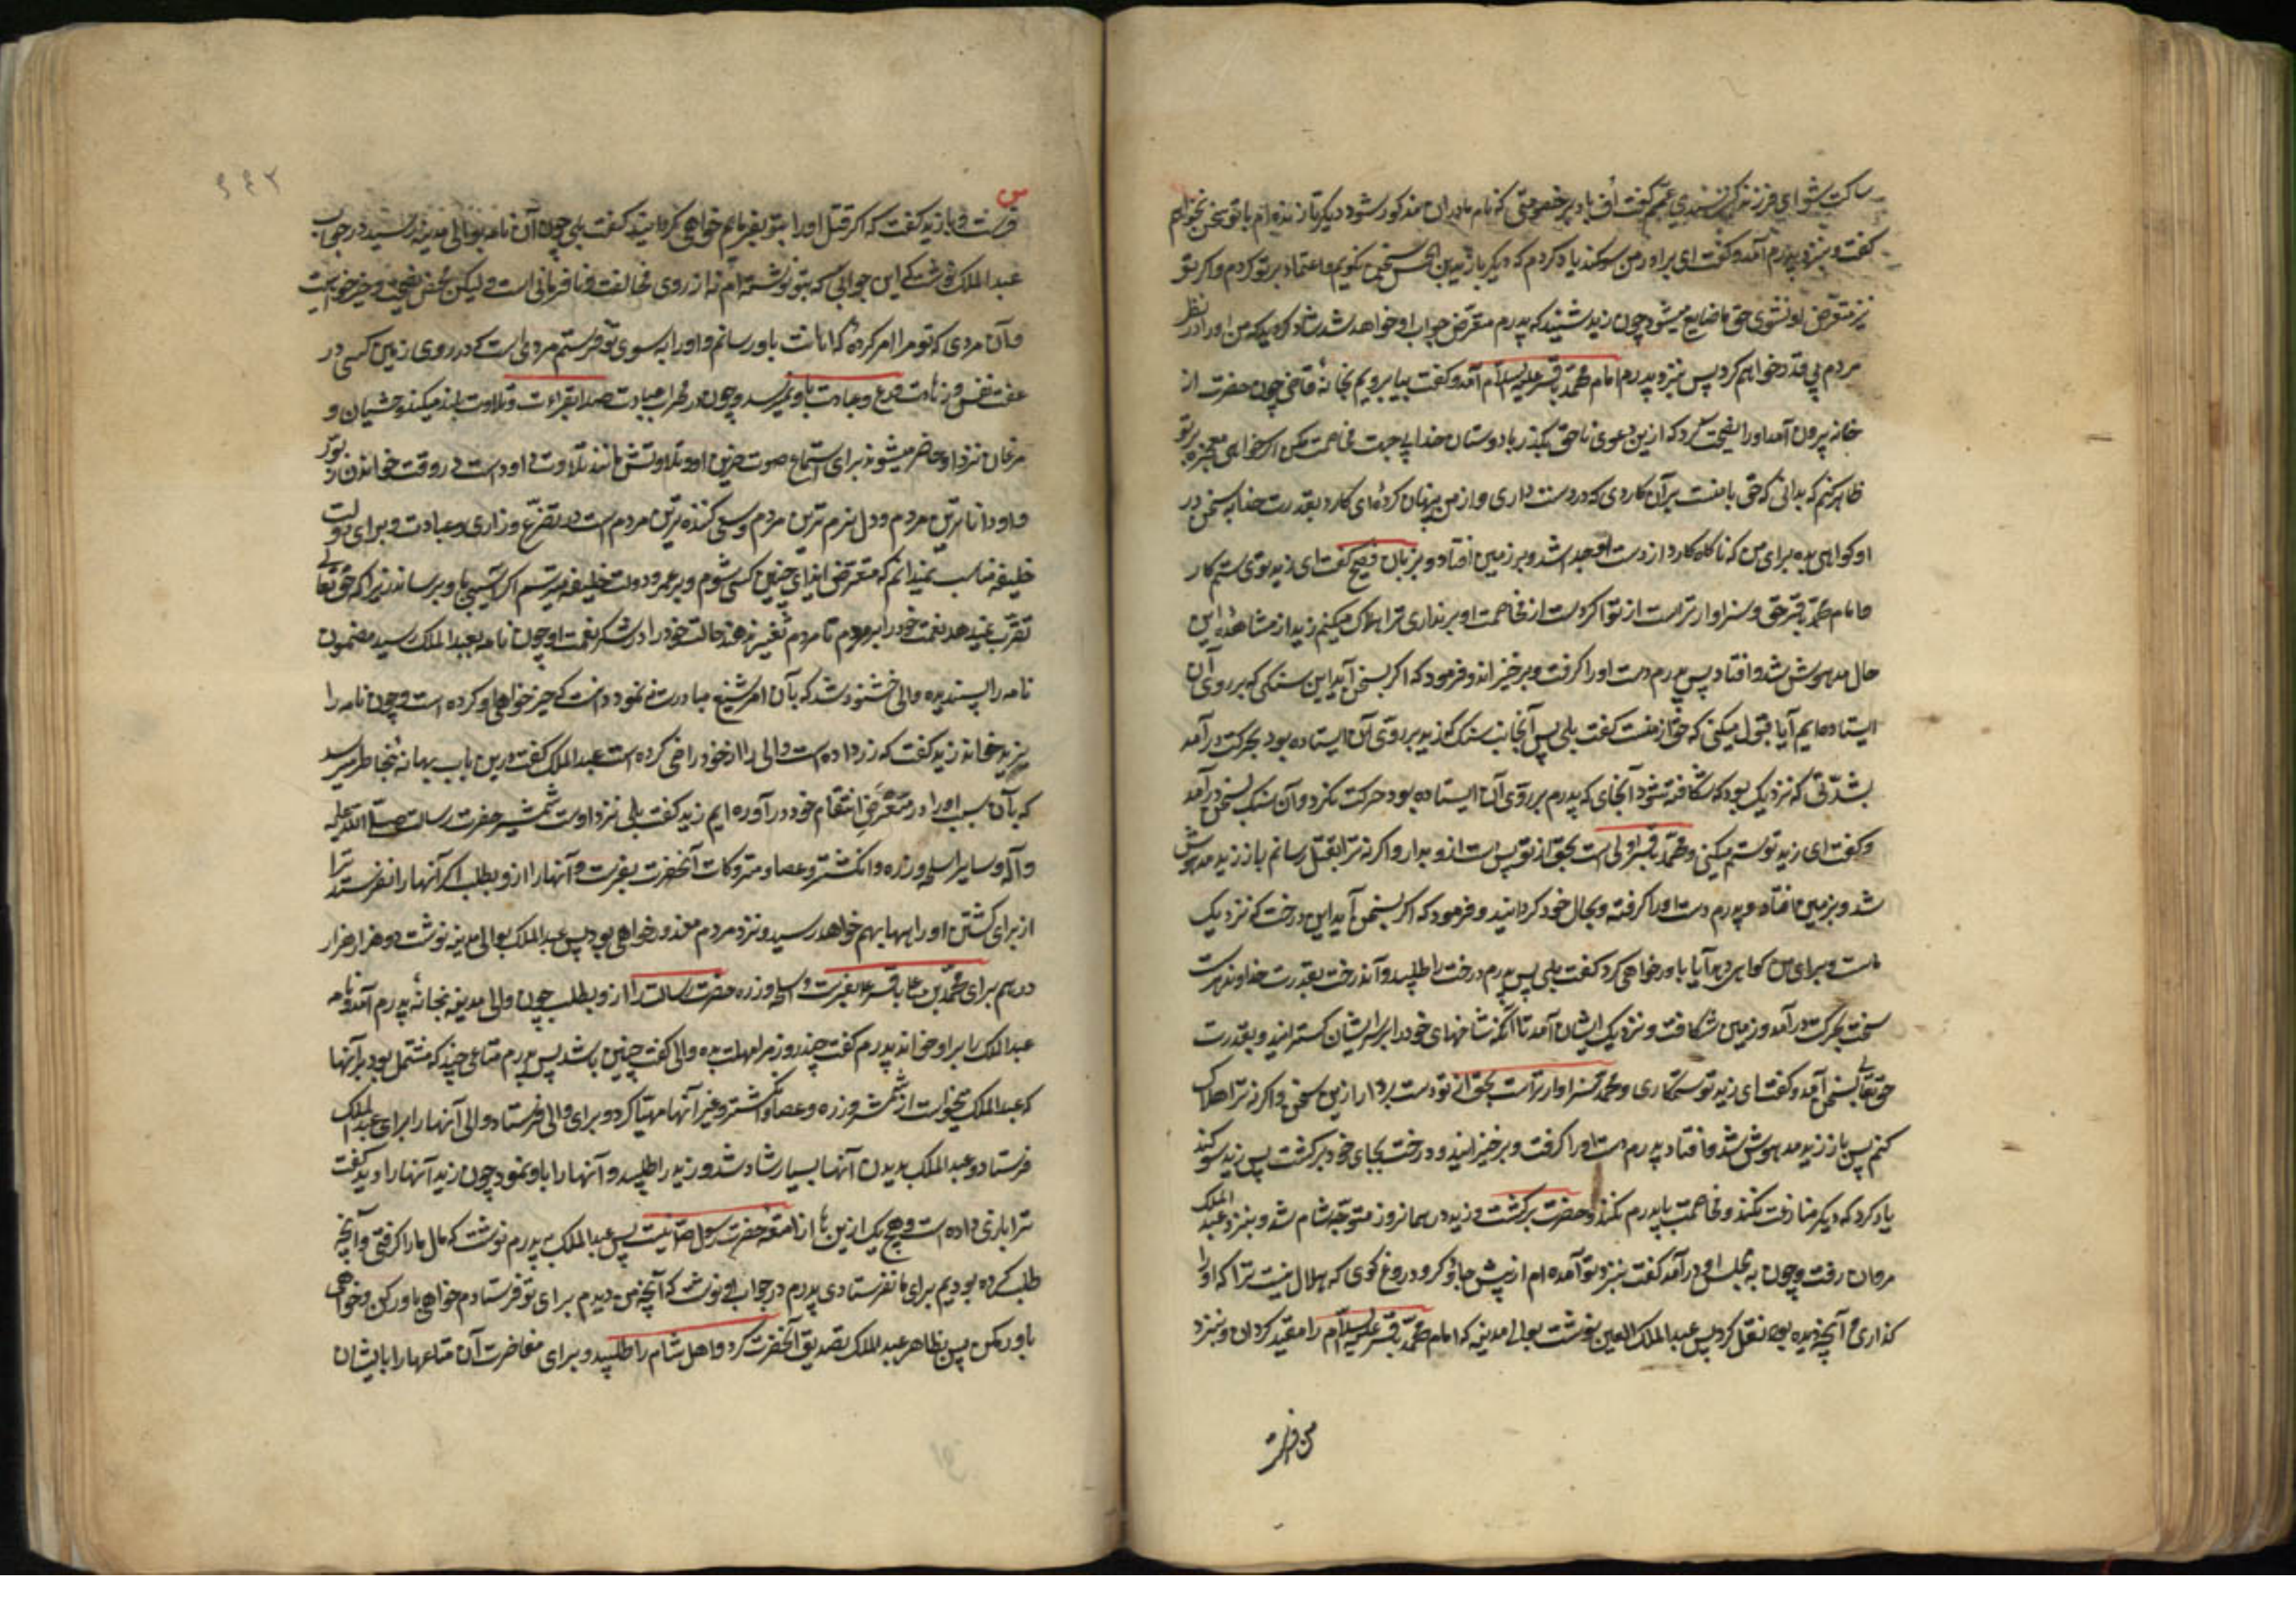 ساکت شو ای فرزند کنیز سندی عمّم گفت اُف باد بر خصومتی که نام مادران مذکور شود دیگر تا زنده‌ام با تو سخن نخواهم
گفت و بنزد پدرم آمد و گفت ای برادر من سوکند یاد کردم که دیگر با زید بن الحسن سخن نکویم و اعتماد بر تو کردم و اکر تو
نیز متعرّض او نشوی حق ما ضایع میشود چون زید شنید که پدرم متعرّض جواب او خواهد شد شاد کردید که من او را در نظر
مردم بی قدر خواهم کرد پس بنزد پدرم امام محمّد باقر علیه السلام آمد و کفت بیا برویم بخانهٔ قاضی چون حضرت از
خانه بیرون آمد او را نصیحت کرد که ازین دعوی ناحق بگذر با دوستان خدا بی جهت مخاصمت مکن اکر خواهی معجزه بر تو
ظاهر کنم که بدانی که حق با منست بر آن کاردی که در دست داری و از من پنهان کردهٔ ای کارد بقدرت خدا بسخن در
او کواهی بده برای من که ناکاه کارد از دست او جدا شد و بر زمین افتاد و بزبان فصیح گفت ای زید توی ستم کار
و امام محمّد باقر حق و سزاوارتر است از تو اکر دست از مخاصمت او برنداری ترا هلاک میکنم زید از مشاهدهٔ این
حال مدهوش شد و افتاد پس پدرم دست او را کرفت و برخیزاند و فرمود که اکر بسخن آید این سنکی که بر روی آن
ایستاده‌ایم آیا قبول میکنی که حق از منست کفت بلی پس آنجانب سنک که زید بر روی آن ایستاده بود بحرکت درآمد
بشدّتی که نزدیک بود که شکافته شود و آنجای که پدرم بر روی آن ایستاده بود حرکت نکرد و آن سنک بسخن درآمد
و کفت ای زید تو ستم میکنی و محمّد باقر اولی است بحق از تو پس دست ازو بدار و اکرنه ترا بقتل رسانم باز زید مدهوش
شد و بزمین افتاد و پدرم دست او را کرفته و بحال خود کردانید و فرمود که اکر بسخن آید این درخت که نزدیک
ماست و برای من کواهی دهد آیا باور خواهی کرد کفت بلی پس پدرم درخت را طلبید و آن درخت بقدرت خداوند
سخت بحرکت درآمد و زمین شکافت و نزدیک ایشان آمد تا آنکه شاخهای خود را بر سر ایشان کسترانید و بقدرت
حق تعالی بسخن آمد و کفت ای زید تو ستمکاری و محمّد سزاوارتر است بحق از تو دست بردار ازین سخن و اکرنه ترا هلاک
کنم پس باز زید مدهوش شد و افتاد پدرم دست او را کرفت و برخیزانید و درخت بجای خود برکشت پس زید سوکند
یاد کرد که دیکر منازعت نکند و مخاصمت با پدرم نکند و حضرت برکشت و زید در همانروز متوجّه شام شد و بنزد عبد الملک
مروان رفت و چون به مجلس او درآمد کفت بنزد تو آمده‌ام از پیش جادوکر و دروغ کوی که حلال نیست ترا که او را
کذاری و آنچه دیده بود نقل کرد پس عبد الملک لعین نوشت بوالی مدینه که امام محمّد باقر علیه السلام را مقید کردان و بنزد
من فرست
فرست و با زید کفت که اکر قتل او را بتو بفرمایم خواهی کردانید کفت بلی چون آن نامه بوالی مدینه رسید در جواب
عبد الملک نوشت که این جوابی که بتو نوشته‌ام نه از روی مخالفت و نافرمانی است ولیکن محض نصیحت و خیرخواهیست
و آن مردی که تو مرا امر کردهٔ که امانت باو رسانم و او را به سوی تو فرستم مردی است که در روی زمین کسی در
عفت نفس و زهادت و ورع و عبادت باو نمیرسد و چون در محراب عبادت صدا بقراءت و تلاوت بلند میکند وحشیان و
مرغان نزد او حاضر میشوند برای استماع صوت حزین او و تلاوتش مانند تلاوت داود است در وقت خواندن زبور
و او داناترین مردم و دل نرم ترین مردم و سعی کننده ترین مردم است در تضرّع و زاری و عبادت و برای دولت
خلیفه مناسب نمیدانم که متعرّض ایذای چنین کسی شوم و بر عمر و دولت خلیفه میترسم اکر آسیبی باو برساند زیرا که حق تعالی
تغیر نمیدهد نعمت خود را بر مردم تا مردم تغیر ندهند حالت خود را در شکر نعمت او چون نامه بعبد الملک رسید مضمون
نامه را پسندیده و از والی خشنود شد که بآن امر شنیع مبادرت ننمود دانست که خیرخواهی او کرده است و چون نامه را
بزید خواند زید کفت که زر داده است و والی را از خود راضی کرده است عبد الملک کفت درین باب بهانه بخاطر میرسد
که بآن سبب او را در معرض انتقام خود درآورده‌ایم زید کفت بلی نزد اوست شمشیر حضرت رسالت صلّی الله علیه
وآله و سایر اسلحه و زره و انکشتر و عصا و متروکات آنحضرت بفرست و آنها را ازو بطلب اکر آنها را نفرستد ترا
از برای کشتن او راه بهانه بهم خواهد رسید و نزد مردم معذور خواهی بود پس عبد الملک بوالی مدینه نوشت دو هزار هزار
درهم برای محمّد بن علی باقر ع بفرست و اسلحه و زره حضرت رسالت را ازو بطلب چون والی مدینه بخانهٔ پدرم آمد و نامه
عبد الملک را بر او خواند پدرم کفت چند روز مرا مهلت بده والی کفت چنین باشد پس پدرم متاعی چند که مشتمل بود بر آنها
که عبد الملک میخواست از شمشیر و زره و عصا و انکشتر و غیر آنها مهیّا کرد و برای والی فرستاد و والی آنها را برای عبد الملک
فرستاد و عبد الملک بدیدن آنها بسیار شاد شد و زید را طلبید و آنها را باو نمود چون زید آنها را دید کفت
ترا بازی داده است و هیچ یک ازین ها از امتعهٔ حضرت رسول ص نیست پس عبد الملک به پدرم نوشت که مال ما را کرفتی و آنچه
طلب کرده بودیم برای ما نفرستادی پدرم در جواب او نوشت که آنچه من دیدم برای تو فرستادم خواهی باور کن و خواهی
باور مکن پس بظاهر عبد الملک تصدیق آنحضرت کرد و اهل شام را طلبید و برای مفاخرت آن متاعها را بایشان